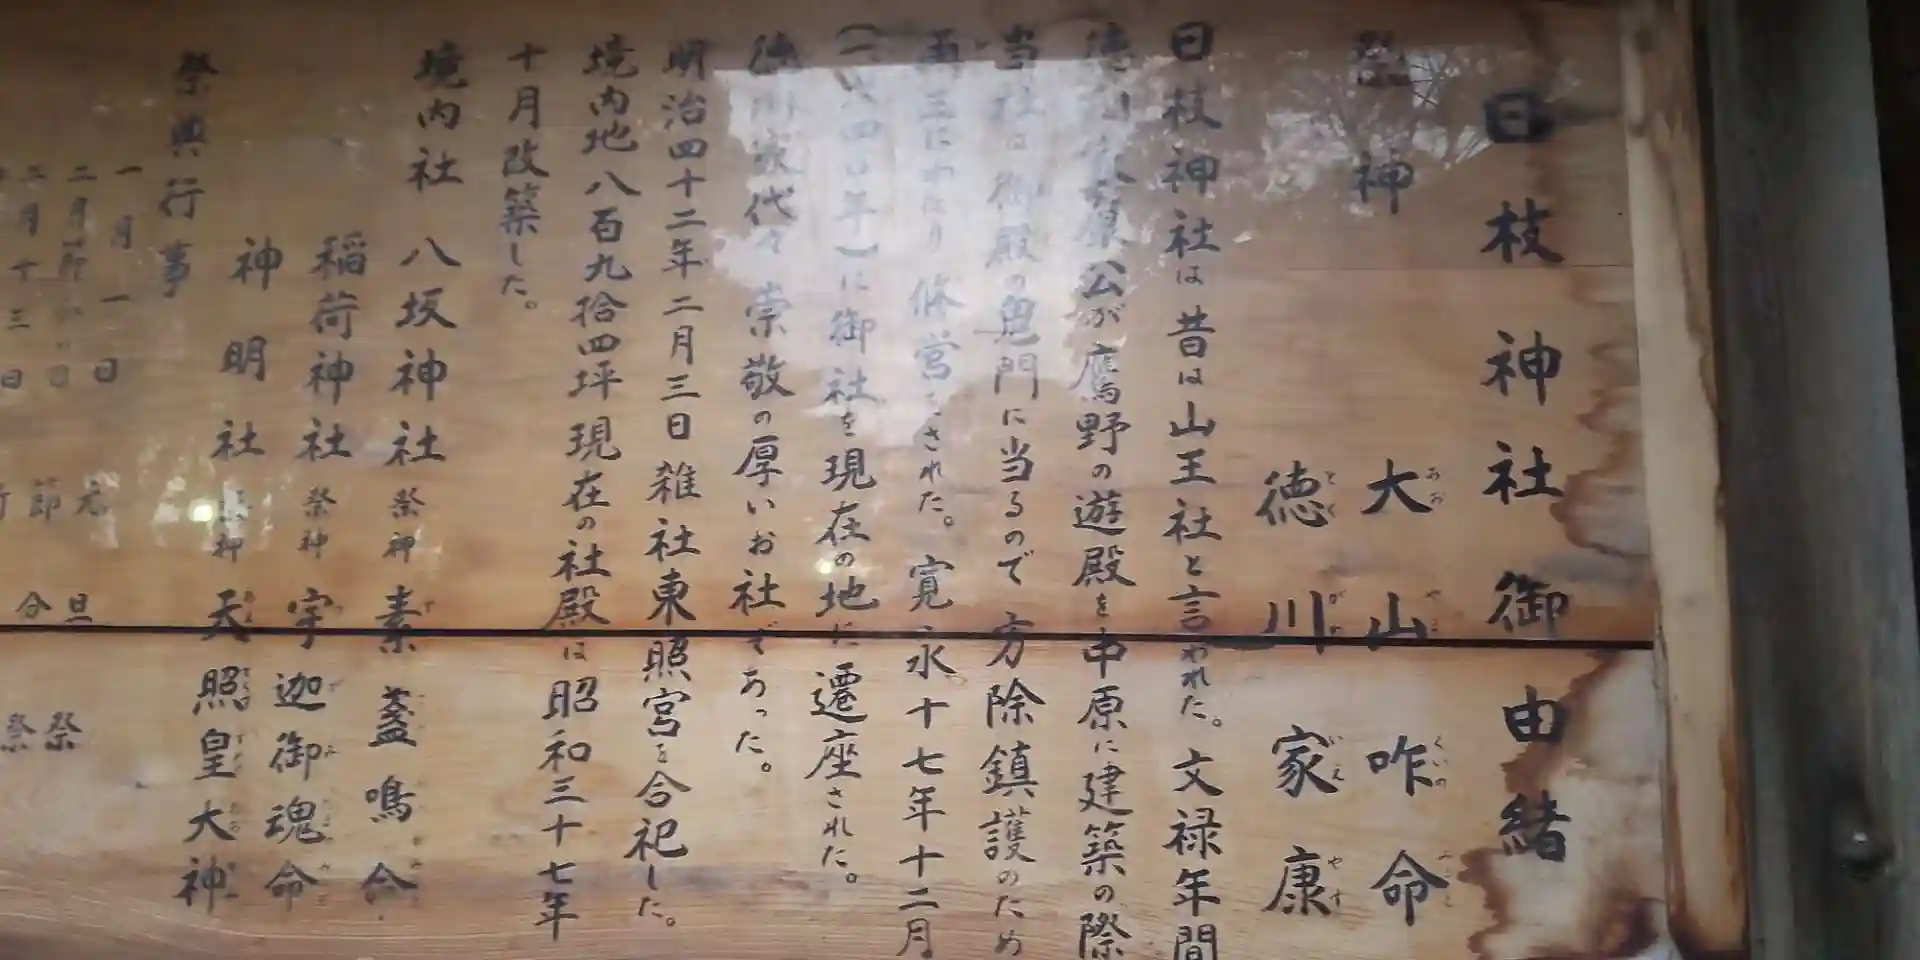 日枝神社御由緒
祭神
大山咋命
おおやまくいのみこと
徳川家康
とくがわいえやす
日枝神社は昔は山王社と言われた。文禄年間
徳川家康公が鷹野の遊殿を中原に建築の際
当社は御殿の鬼門に当るので方除鎮護のため
再三にわたり修営された。寛永十七年十二月
(一六四〇年)に御社を現在の地に遷座された。
徳川家代々崇敬の厚いお社であった。
明治四十二年二月三日雑社東照宮を合祀した。
境内地八百九拾四坪現在の社殿は昭和三十七年
十月改築した。
境内社 八坂神社 祭神 素盞鳴命
稲荷神社 祭神 宇迦御魂命
神明社 祭神 天照皇大神
祭典行事
一月一日 元旦祭
二月節分の日 節分祭
二月十三日